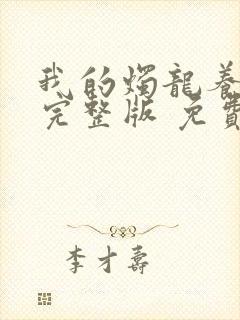 我的燭龍養
完整版 免費
李才壽